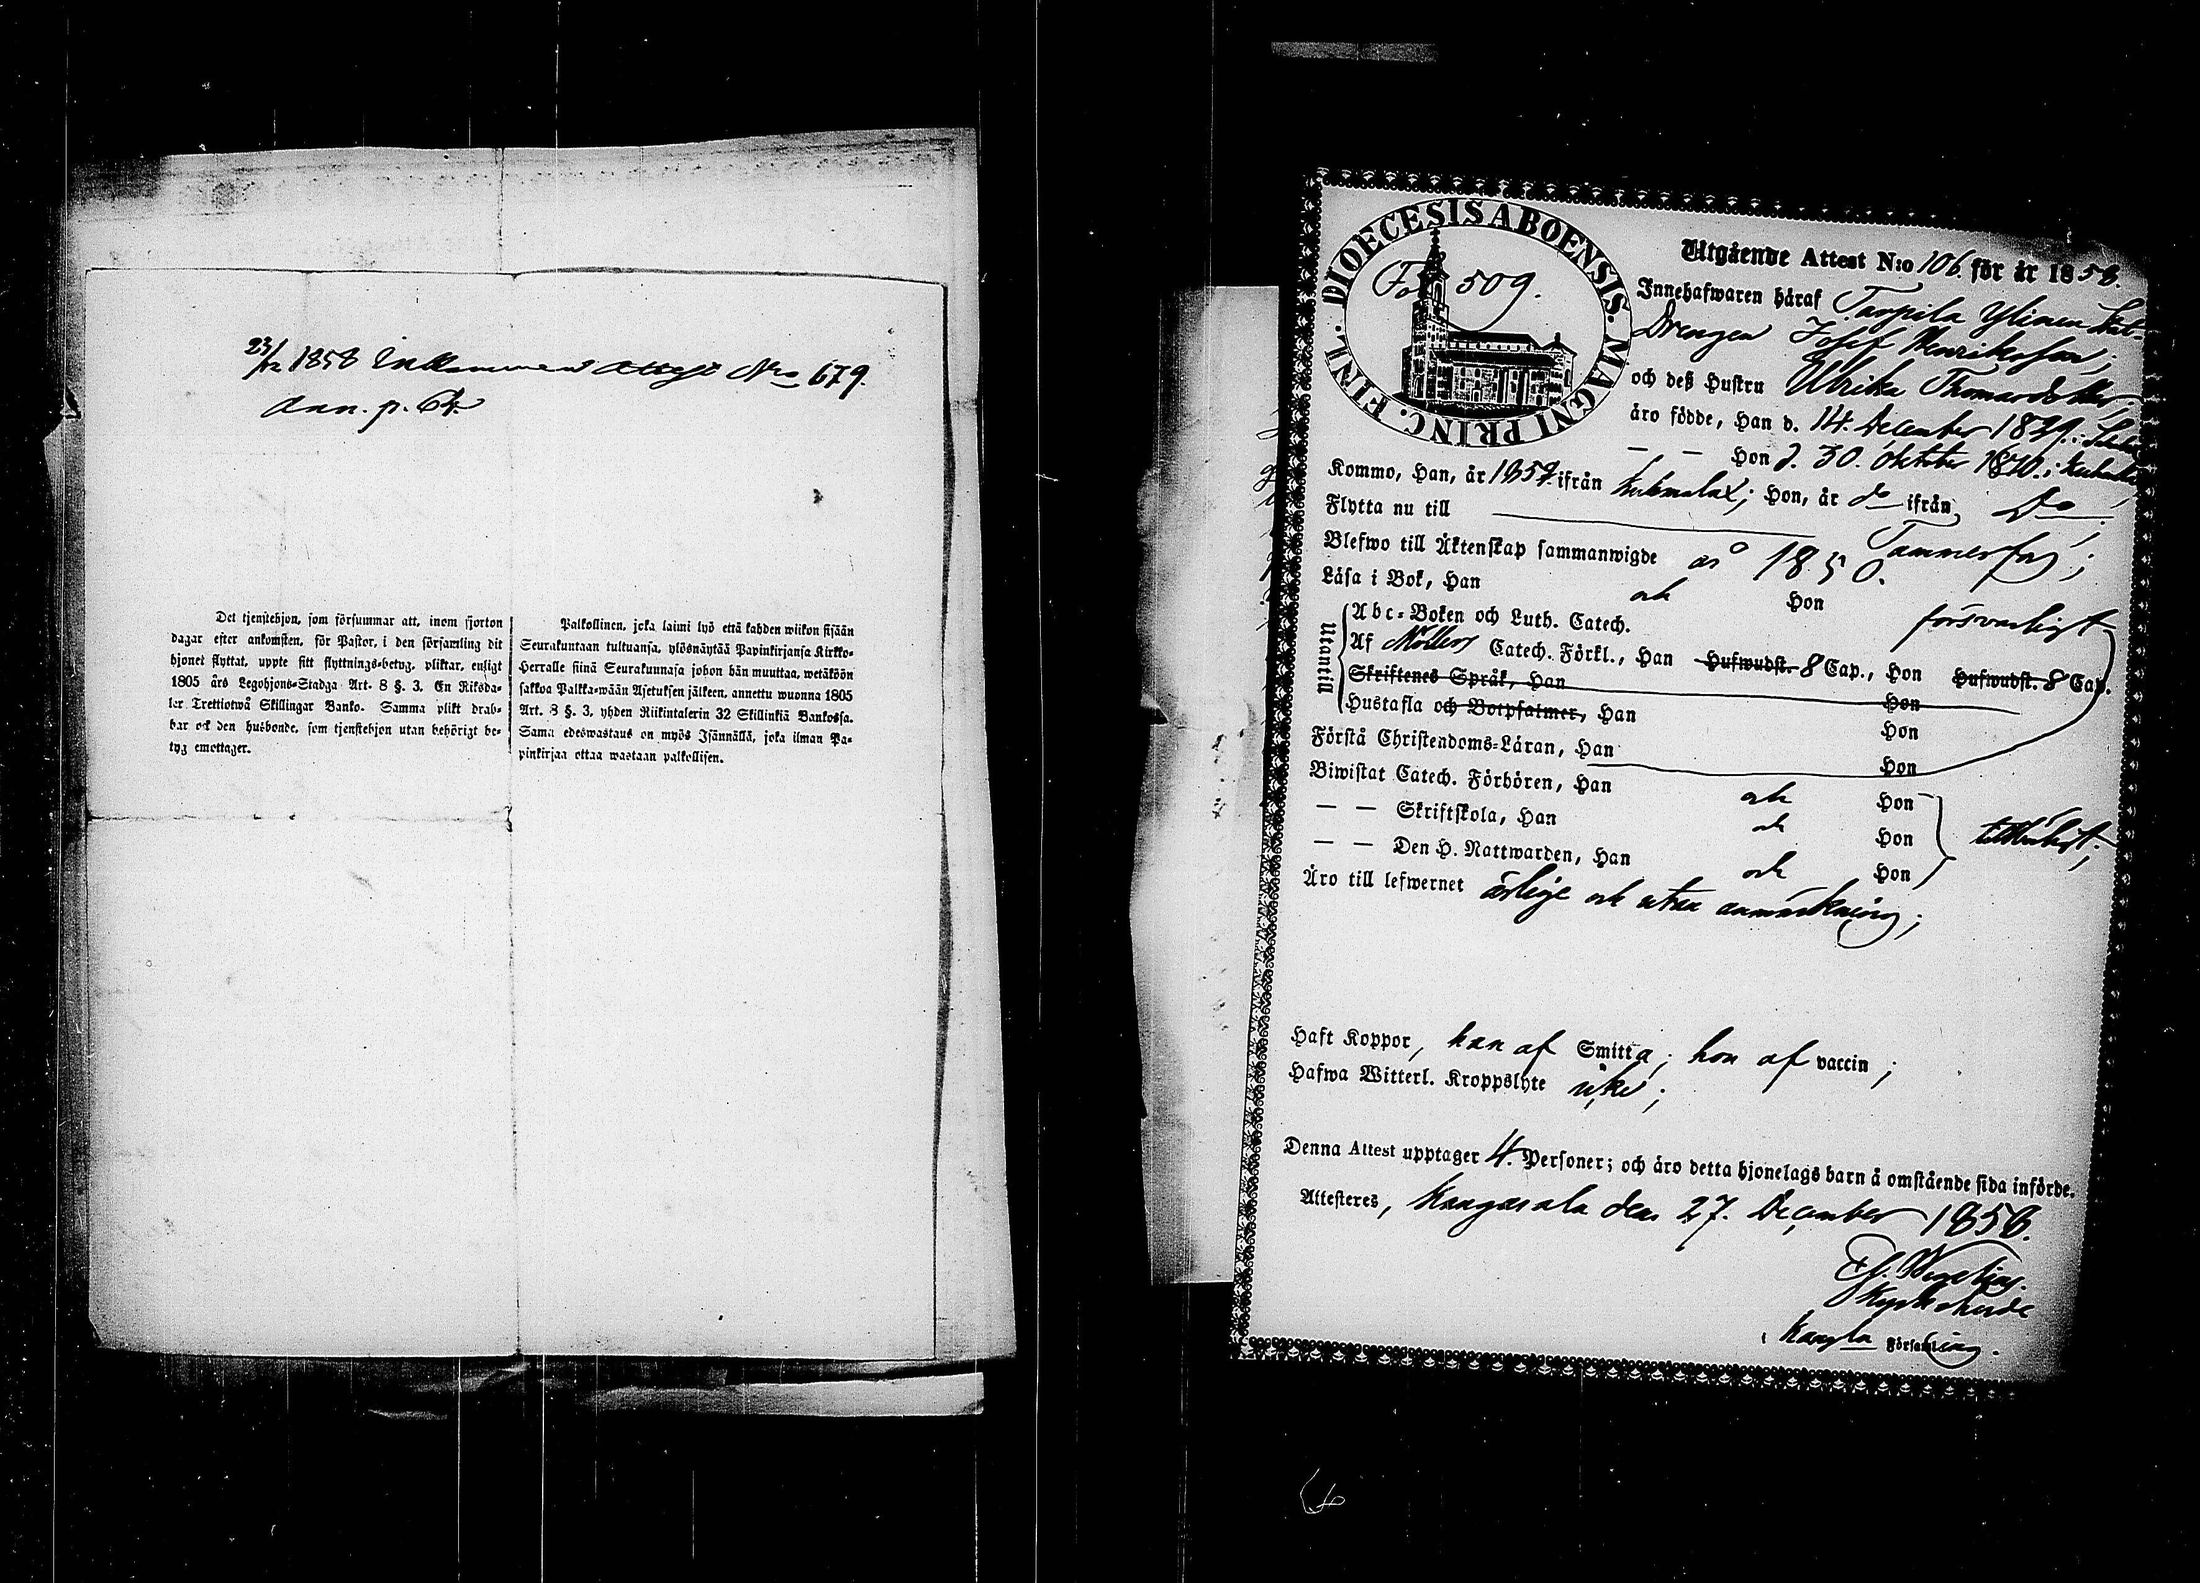 23/12 1858 Inkommen Attest No 679.
Ann. p.
Det tjenstehjon, som försummar att, inom fjorton
dagar efter ankomsten, för Pastor, i den församling dit
hjonet flyttat, uppte sitt flyttnings-betyg, pliktar, enligt
1805 års Legohjons-Stadga Art. 8 §. 3. En Riksda-
ler Trettiotwå Skillingar Banko. Samma plikt drab-
bar ock den husbonde, som tjenstehjon utan behörigt be-
tyg emottager.
Palkollinen, joka laimi lyö että kahden wiikon sisään
Seurakuntaan tultuansa, ylösnäytää Papinkirjansa Kirkko-
Herralle siinä Seurakunnasa johon hän muuttaa, wetäköön
sakkoa Palkka-wään Asetuksen jälkeen, annettu wuonna 1805
Art. 8 §. 3, yhden Riikintalerin 32 Skillinkiä Bankossa.
Sama edeswastaus on myös Isännällä, joka ilman Pa-
pinkirjaa ottaa wastaan palkollisen.
DIOECESIS ABOENSIS. MAGNI PRINC. FINL.
Fol 509.
Utgående Attest N:o 106 för år 1858.
Innehafwaren häraf Tarpila Ylinen
Drengen Josef Henriksson,
och deß Hustru Ulrika Thomasdotter,
äro födde, Han d. 14. December 1829.
— — Hon d. 30. Oktober 1820. i
Kommo, Han, år 1857 ifrån Kuhmalax; Hon, år do ifrån Do;
Flytta nu till Tammerfors;
Blefwo till Äktenskap sammanwigde år 1850.
Läsa i Bok, Han och Hon försvarligt
Utantill
Abc-Boken och Luth. Catech.
Af Möllers Catech. Förkl., Han Hufwudst. 8 Cap., Hon Hufwudst. 8 Cap.
Skriftenes Språk, Han Hon
Hustafla och Botpsalmer, Han Hon
Förstå Christendoms-Läran, Han Hon
Biwistat Catech. Förhören, Han och Hon
— — Skriftskola, Han och Hon
— — Den H. Nattwarden, Han och Hon
Äro till lefwernet ärlige och utan anmärkning;
Haft Koppor, han af Smitta; hon af vaccin;
Hafwa Witterl. Kroppslyte icke;
Denna Attest upptager 4. Personer; och äro detta hjonelags barn å omstående sida införde.
Attesteres, Kangasala den 27. December 1858.
Kyrkoherde
i Kangla Församling.